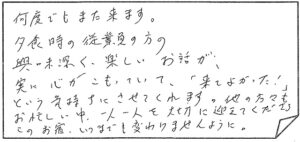 何度でもまた来ます。
夕食時の従業員の方の
興味深く、楽しいお話が、
実に心がこもっていて、「来てよかった!」
という気持ちにさせてくれます。他の方々も
お忙しい中、一人一人を大切に迎えてくださる
このお宿、いつまでも変わりませんように。